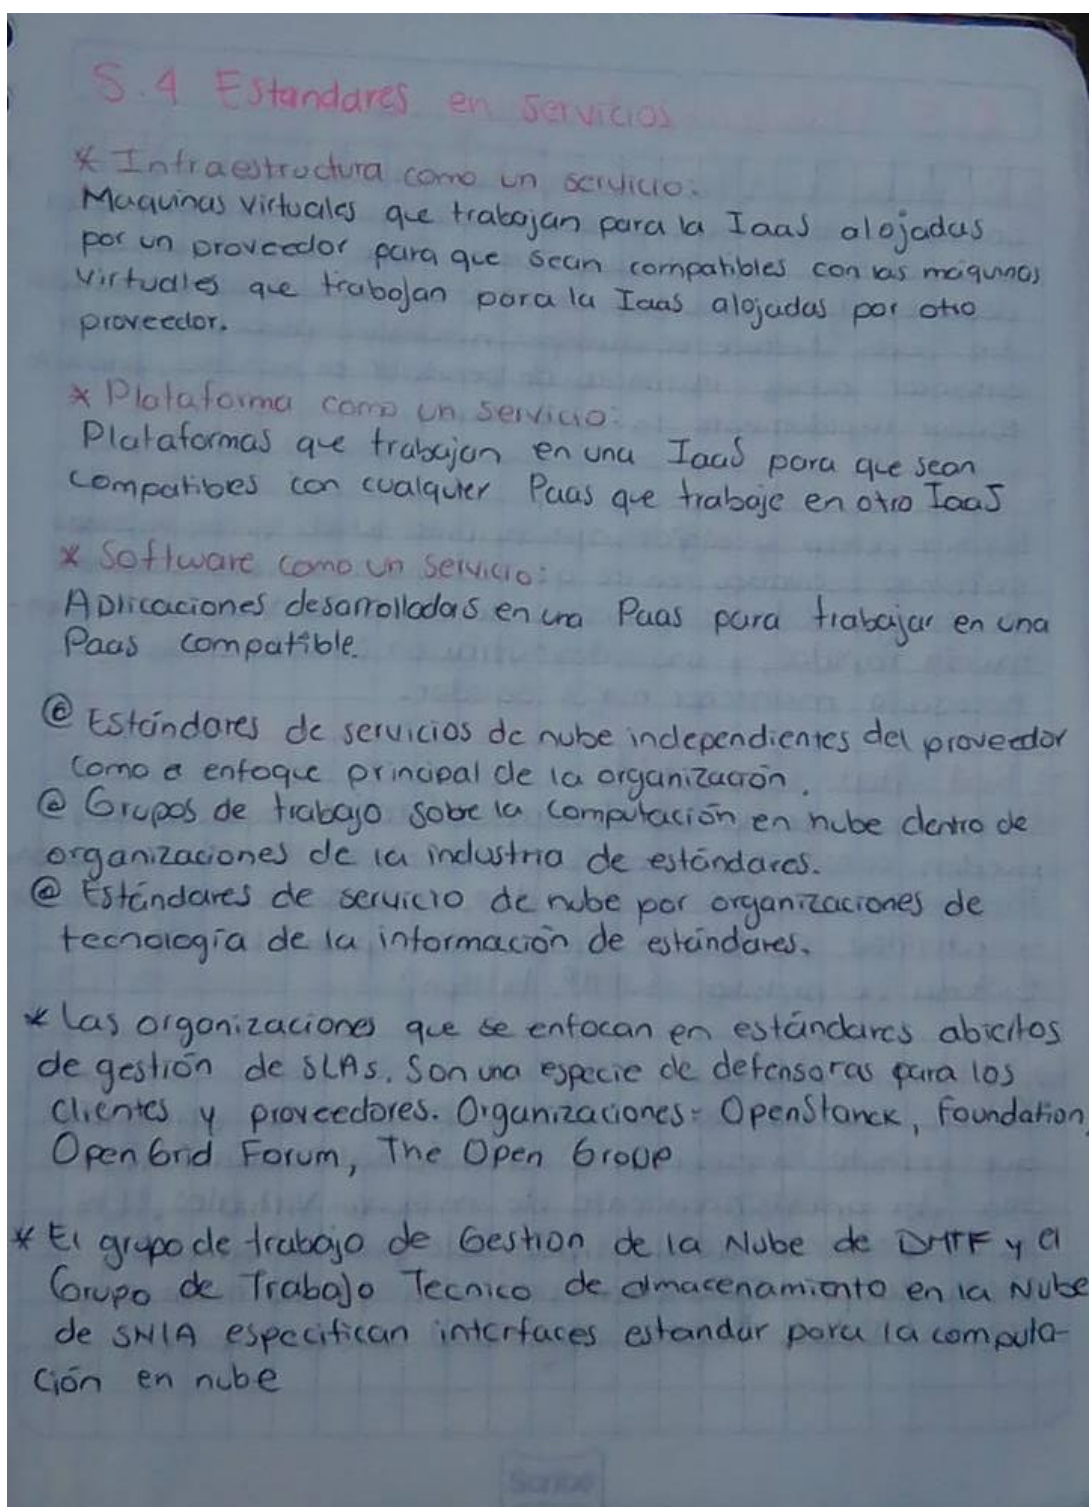 5.4 Estandares en servicios
* Infraestructura como un servicio:
Maquinas virtuales que trabajan para la IaaS alojadas
por un proveedor para que sean compatibles con las máquinas
virtuales que trabajan para la Iaas alojadas por otro
proveedor.
* Plataforma como un servicio:
Plataformas que trabajan en una IaaS para que sean
compatibles con cualquier Paas que trabaje en otro IaaS
* Software como un servicio:
Aplicaciones desarrolladas en una Paas para trabajar en una
Paas compatible.
@ Estándares de servicios de nube independientes del proveedor
como a enfoque principal de la organización.
@ Grupos de trabajo sobre la computación en nube dentro de
organizaciones de la industria de estándares.
@ Estándares de servicio de nube por organizaciones de
tecnología de la información de estándares.
* Las organizaciones que se enfocan en estándares abiertos
de gestión de SLAs. Son una especie de defensoras para los
clientes y proveedores. Organizaciones: OpenStanck, Foundation,
Open Grid Forum, The Open Group
* El grupo de trabajo de Gestion de la Nube de DMTF y el
Grupo de Trabajo Tecnico de almacenamiento en la Nube
de SNIA especifican interfaces estandar para la computa-
ción en nube
Scribe